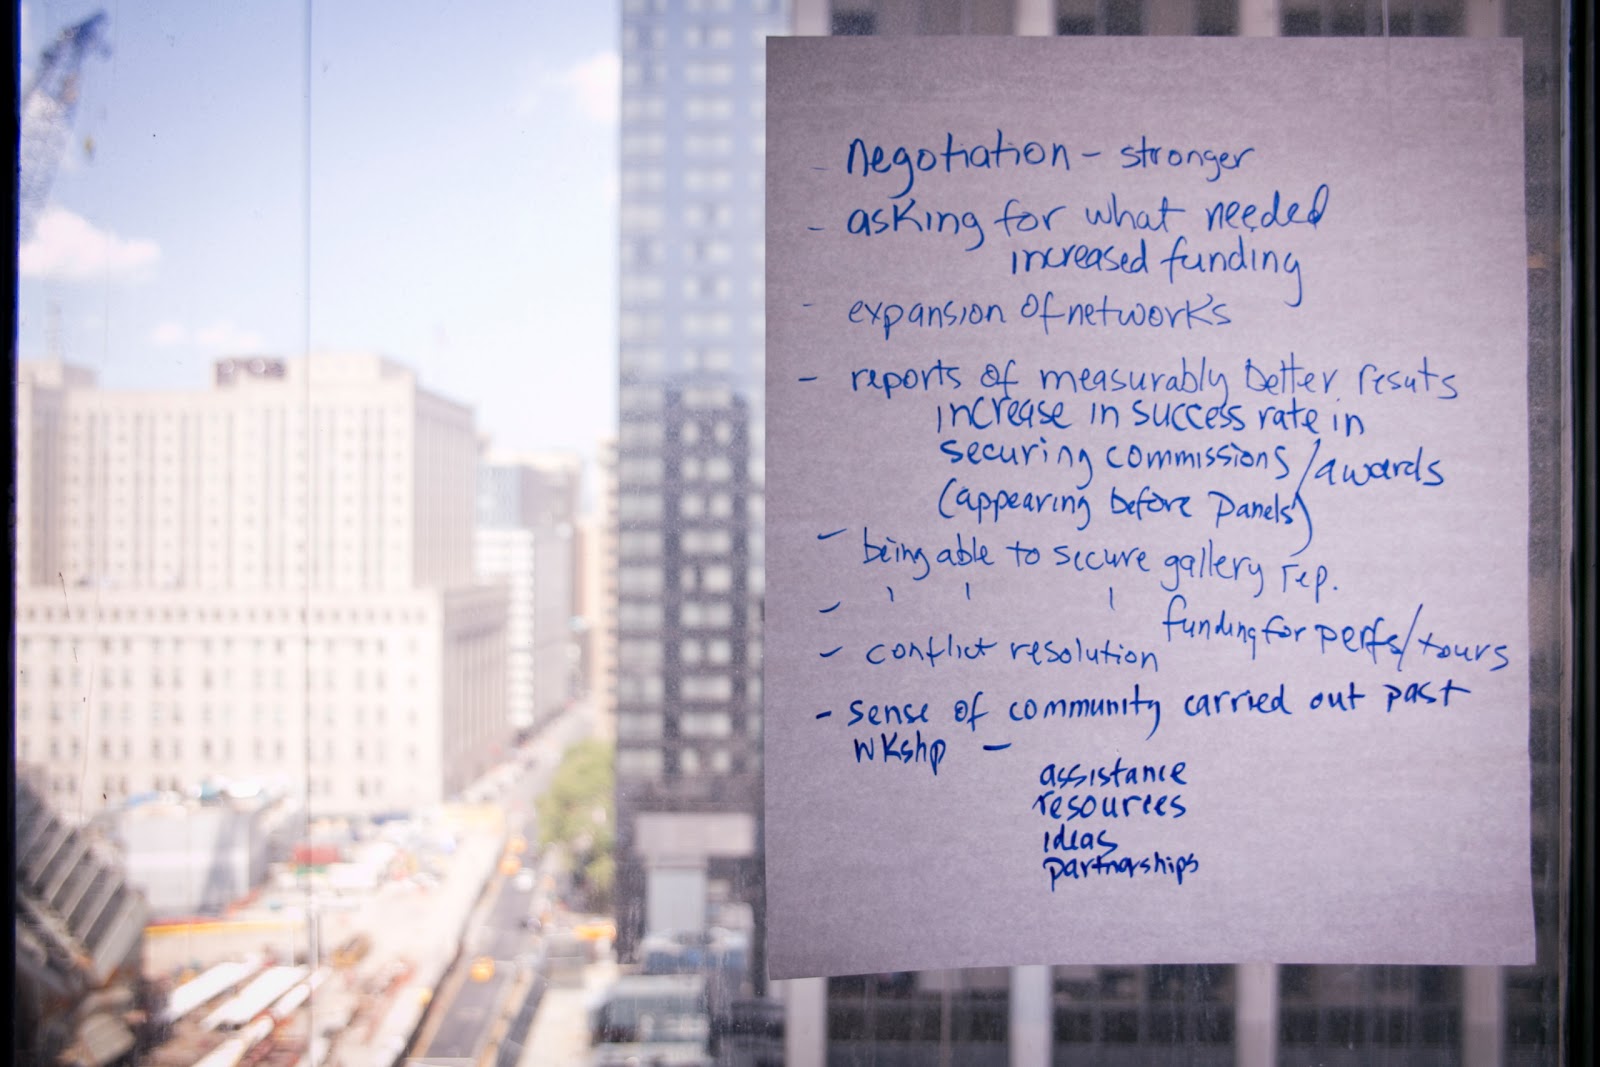 - negotiation - stronger
- asking for what needed
increased funding
- expansion of networks
- reports of measurably better resuts
increase in success rate in
securing commissions/awards
(appearing before panels)
- being able to secure gallery rep.
- ' ' ' funding for perfs/tours
- conflict resolution
- sense of community carried out past
wkshp -
assistance
resources
ideas
partnerships